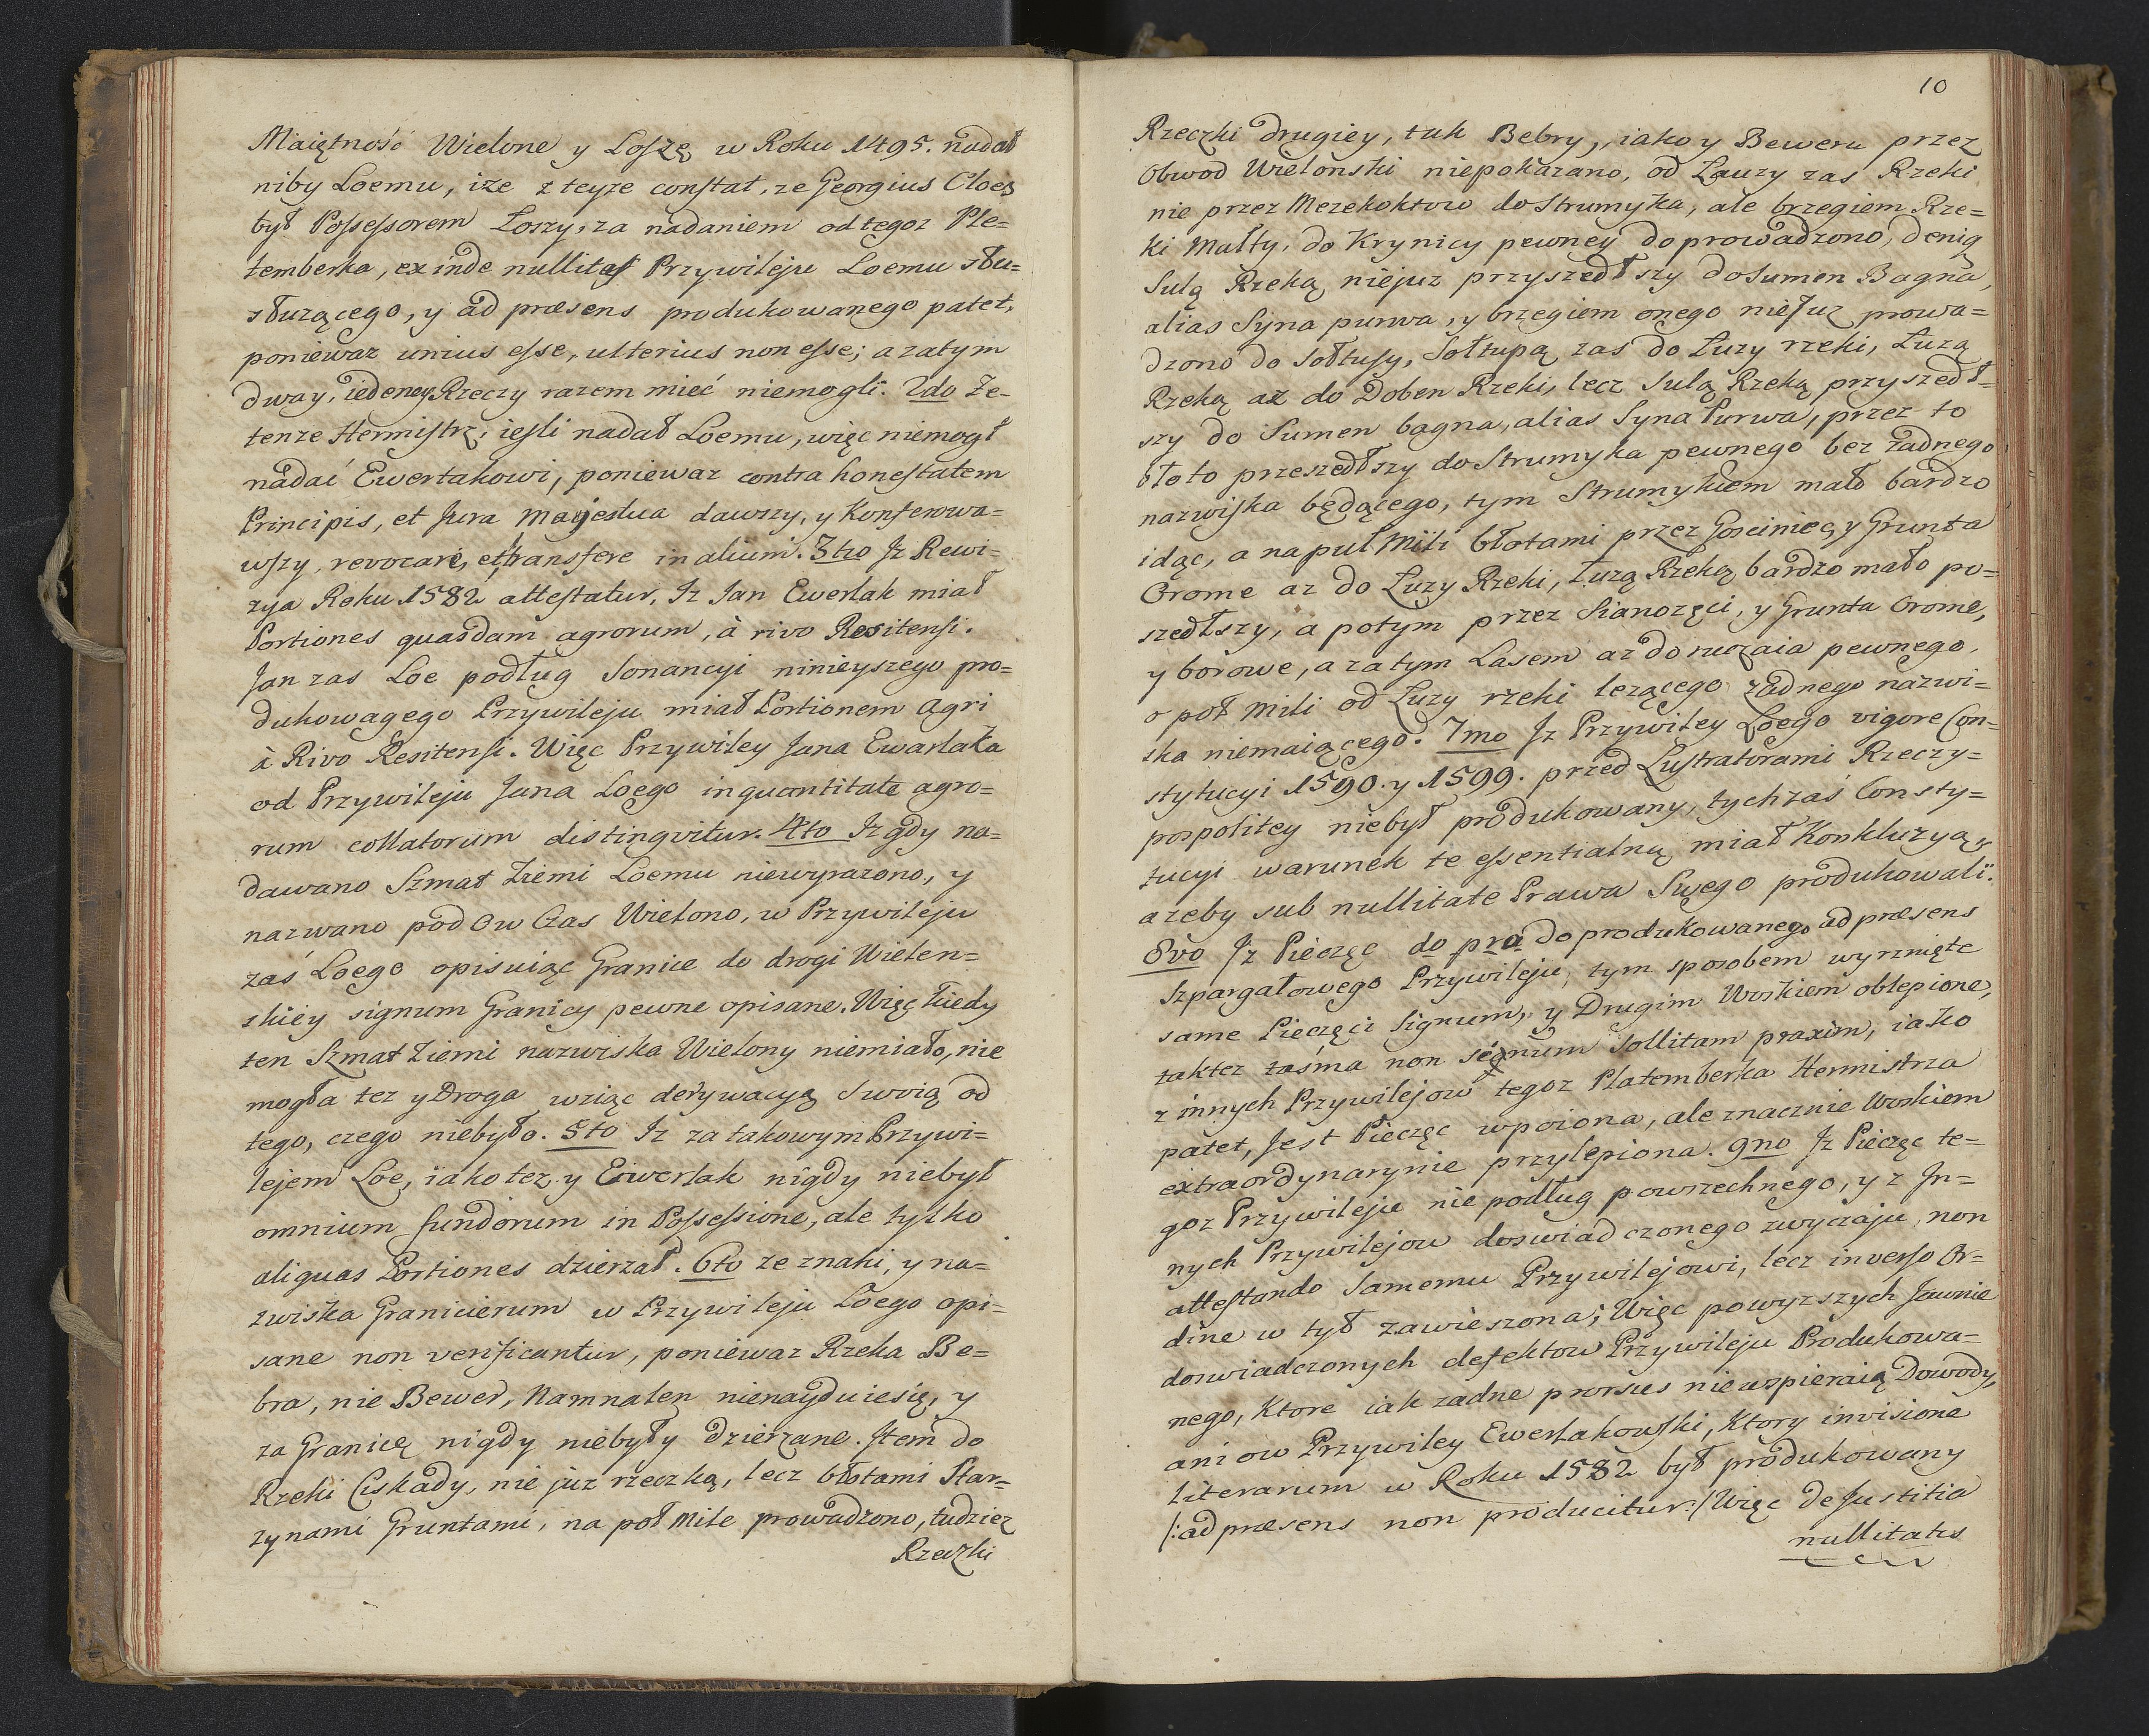 Maiętność Wielone y Loszę w Roku 1495. nadał
niby Loemu, ize z teyze constat, ze Georgius Cloes
był Possessorem Loszy, za nadaniem od tegoz Ple=
temberka, ex inde nullitas Przywileju Loemu słu=
służącego, y ad præsens produkowanego patet,
poniewaz unius esse, ulterius non esse; a zatym
dway, iedeney Rzeczy razem mieć niemogli. 2do Ze-
tenze Hermistrz, iesli nadał Loemu, więc niemogł
nadać Ewertakowi, poniewaz contra honestatem
Principis, et Jura Majestua dawszy, y Konferowa=
wszy, revocare, et transfere in alium. 3tio Jz Rewi=
zya Roku 1582 attestatur, Jz Jan Ewerlak miał
Portiones quasdam agrorum, à rivo Resitensi.
Jan zas Loe podług Sonancyi ninieyszego pro=
dukowagego Przywileju miał Portionem agri
à Rivo Resitensi. Więc Przywiley Jana Ewarlaka
od Przywileju Jana Loego in quantitate agro=
rum collatorum distinqvitur. 4to Jz gdy na=
dawano Szmat Ziemi Loemu niewyrazono, y
nazwano pod Ow Czas Wielono, w Przywileju
zaś Loego opisuiąc Granice do drogi Wielen=
skiey signum Granicy pewne opisane. Więc kiedy
ten Szmat Ziemi nazwiska Wielony niemiało, nie
mogła tez y Droga wziąc derywacyą Swoią od
tego, czego niebyło. 5to Jz za takowym Przywi=
lejem Loe, iako tez y Eiwerlak nigdy niebył
omnium fundorum in Possessione, ale tylko
aliquas Portiones dzierzał. 6to ze znaki, y na=
zwiska Granicierum w Przywileju Loego opi=
sane non verificantur, poniewaz Rzeka Be=
bra, nie Bewer, Namnalen nienayduiesię, y
za Granicę nigdy niebyły dzierzane. Jtem do
Rzeki Ciskady, nie juz rzeczką, lecz błotami Star=
zynami Gruntami, na poł Mile prowadzono, tudziez
Rzeczki
10
Rzeczki drugiey, tak Bebry, iako y Beweru przez
Obwod Wielonski niepokazano, od Lauzy zas Rzeki
nie przez Mezekoktow do Strumyka, ale brzegiem Rze=
ki Małty, do Krynicy pewney doprowadzono, denią
Sulą Rzeką niejuz przyszedłszy do Sumen Bagna,
alias Syna purwa, y brzegiem onego niejuz prowa=
dzono do Sołtusy, Sołtupą zas do Łuzy rzeki, Łuzą
Rzeką az do Doben Rzeki, lecz Sulą Rzeką przyszedł=
szy do Sumen bagna, alias Syna Purwa, przez to
błoto przeszedłszy do Strumyka pewnego bez zadnego
nazwiska będącego, tym Strumykiem mało bardzo
idąc, a na puł Mili błotami przez Gosciniec, y Grunta
Orome az do Łuzy Rzeki, Łuzą Rzeką bardzo mało po=
szedłszy, a potym przez Sianozęci, y Grunta Orome,
y borowe, a zatym Lasem az do ruczaia pewnego,
o poł mili od Łuzy rzeki lezącego zadnego nazwi=
ska niemaiącego. 7mo Jz Przywiley Loego vigore Con=
stytucyi 1590. y 1599. przed Lustratorami Rzeczy=
pospolitey niebył produkowany, tych zaś Consty=
tucyi warunek te essentialną miał Konkluzyą,
azeby sub nullitate Prawa Swego produkowali.
8vo Jz Pieczęc do pra do produkowanego ad præsens
Szpargałowego Przywileju, tym sposobem wyrznięte
same Pieczęci Signum, y Drugim Woskiem oblepione,
taktez taśma non signum sollitam praxim, iako
z innych Przywilejow tegoz Platemberka Hermistrza
patet, Jest Pieczęc wpoiona, ale znacznie Woskiem
extraordynarynie przylepiona. 9no Jz Pieczęc te=
goz Przywileju nie podług powszechnego, y z Jn=
nych Przywilejow doswiadczonego zwyczaju, non
attestando Samemu Przywilejowi, lecz inverso Or=
dine w tył zawieszona; Więc powyzszych Jawnie
doswiadczonych defektow Przywileju Produkowa=
nego, Ktore iak zadne prorsus niewspieraią Dowody,
ani ow Przywiley Ewerlakowski, Ktory in visione
Literarum w Roku 1582 był produkowany
/: ad præsens non producitur :/ Więc de Justitia
nullitatis